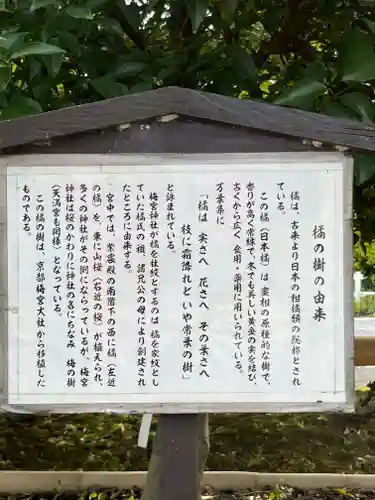 橘の樹の由来
橘は、古来より日本の柑橘種の総称とされ
ている。
この橘（日本橘）は蜜柑の原種的な樹で、
香りが高く常緑で、冬でも美しい黄金の実を結び、
古くから広く、食用・薬用に用いられている。
万葉集に
「橘は 実さへ 花さへ その葉さへ
枝に霜降れど いや常葉の樹」
と詠まれている。
梅宮神社が橘を社紋とするのは、橘を家紋とし
ていた橘氏の祖、諸兄公の母により創建され
たところに由来する。
宮中では、紫宸殿の南階下の西に橘（右近
の橘）を、東に山桜（左近の桜）が植えられ、
多くの神社がその例にならっているが、梅宮
神社は桜のかわりに神社の名にちなみ、梅の樹
（天満宮も同様）となっている。
この橘の樹は、京都梅宮大社から移植した
ものである。